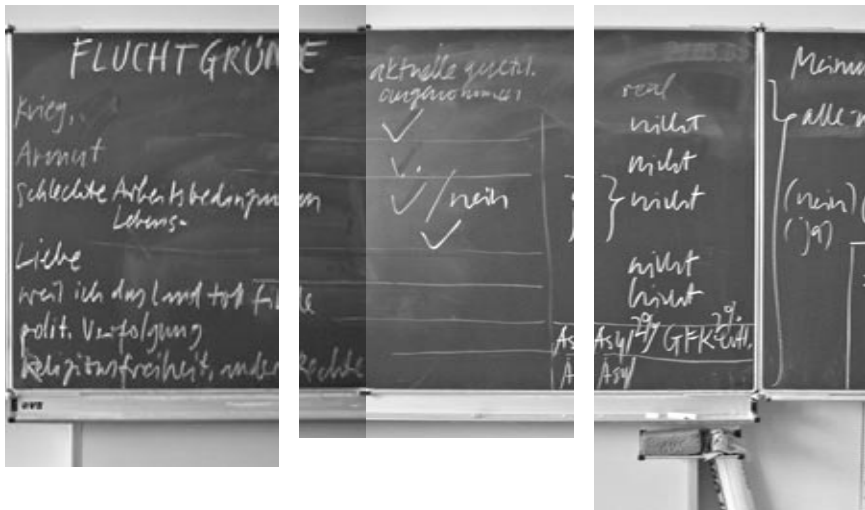 FLUCHTGRÜNDE
Krieg,
Armut
Schlechte Arbeitsbedingungen
Lebens-
Liebe
weil ich das Land toll finde
polit. Verfolgung
Religionsfreiheit, andere Rechte
aktuelle
angenommen
/ nein
real
nicht
nicht
nicht
nicht
nicht
Asyl 2% GFK 2%
Asyl
Meinu
alle
(nein)
(ja)